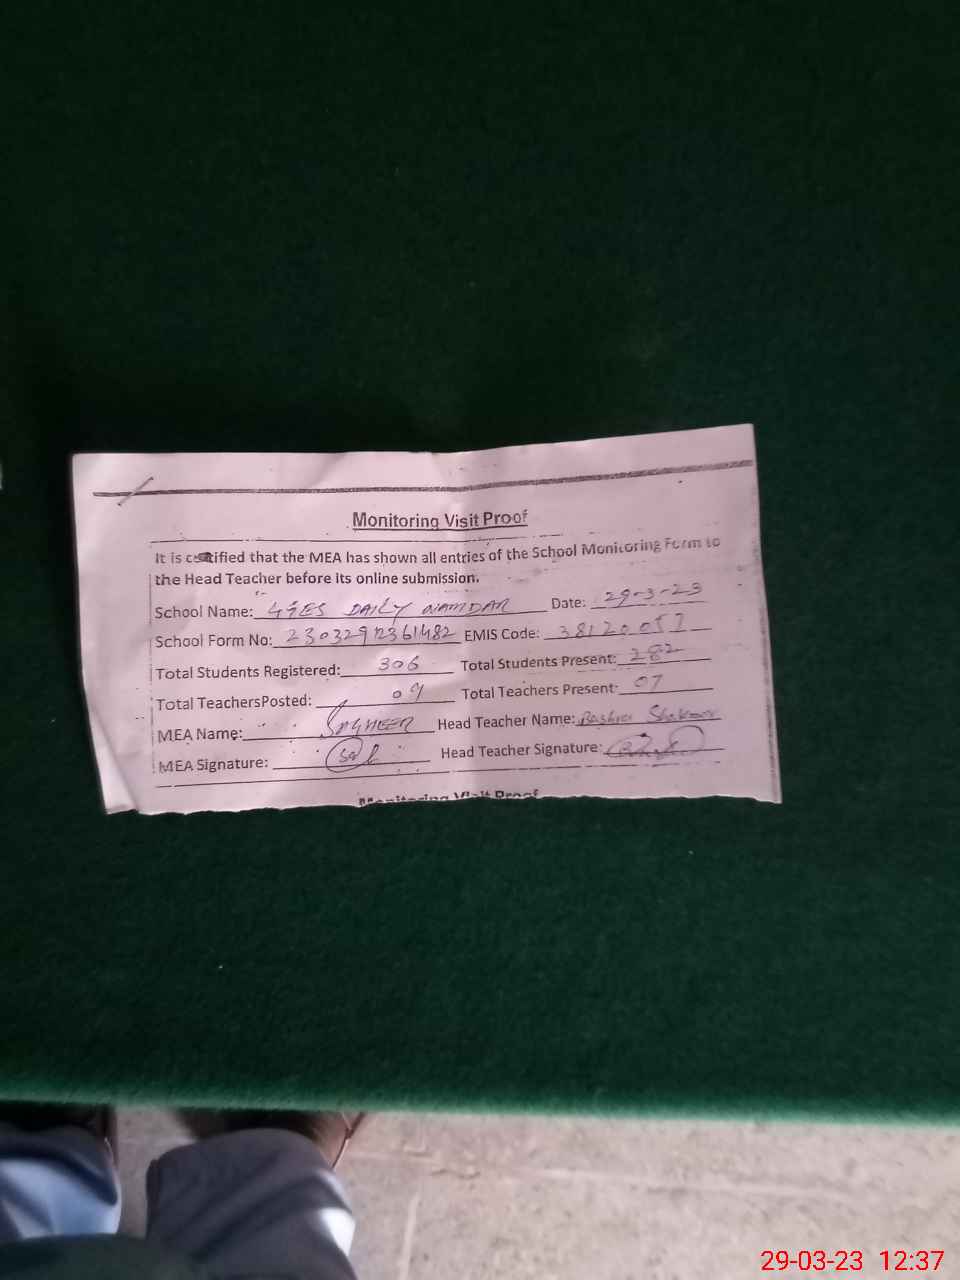 Monitoring Visit Proof
It is certified that the MEA has shown all entries of the School Monitoring Form to
the Head Teacher before its online submission.
School Name: GGES DAILY NAMDAR Date: 29-3-23
School Form No: EMIS Code: 38120057
Total Students Registered: 306 Total Students Present: 282
Total TeachersPosted: 09 Total Teachers Present: 07
MEA Name: Head Teacher Name: Bashra
MEA Signature: Head Teacher Signature:
Monitoring Visit Proof
29-03-23 12:37